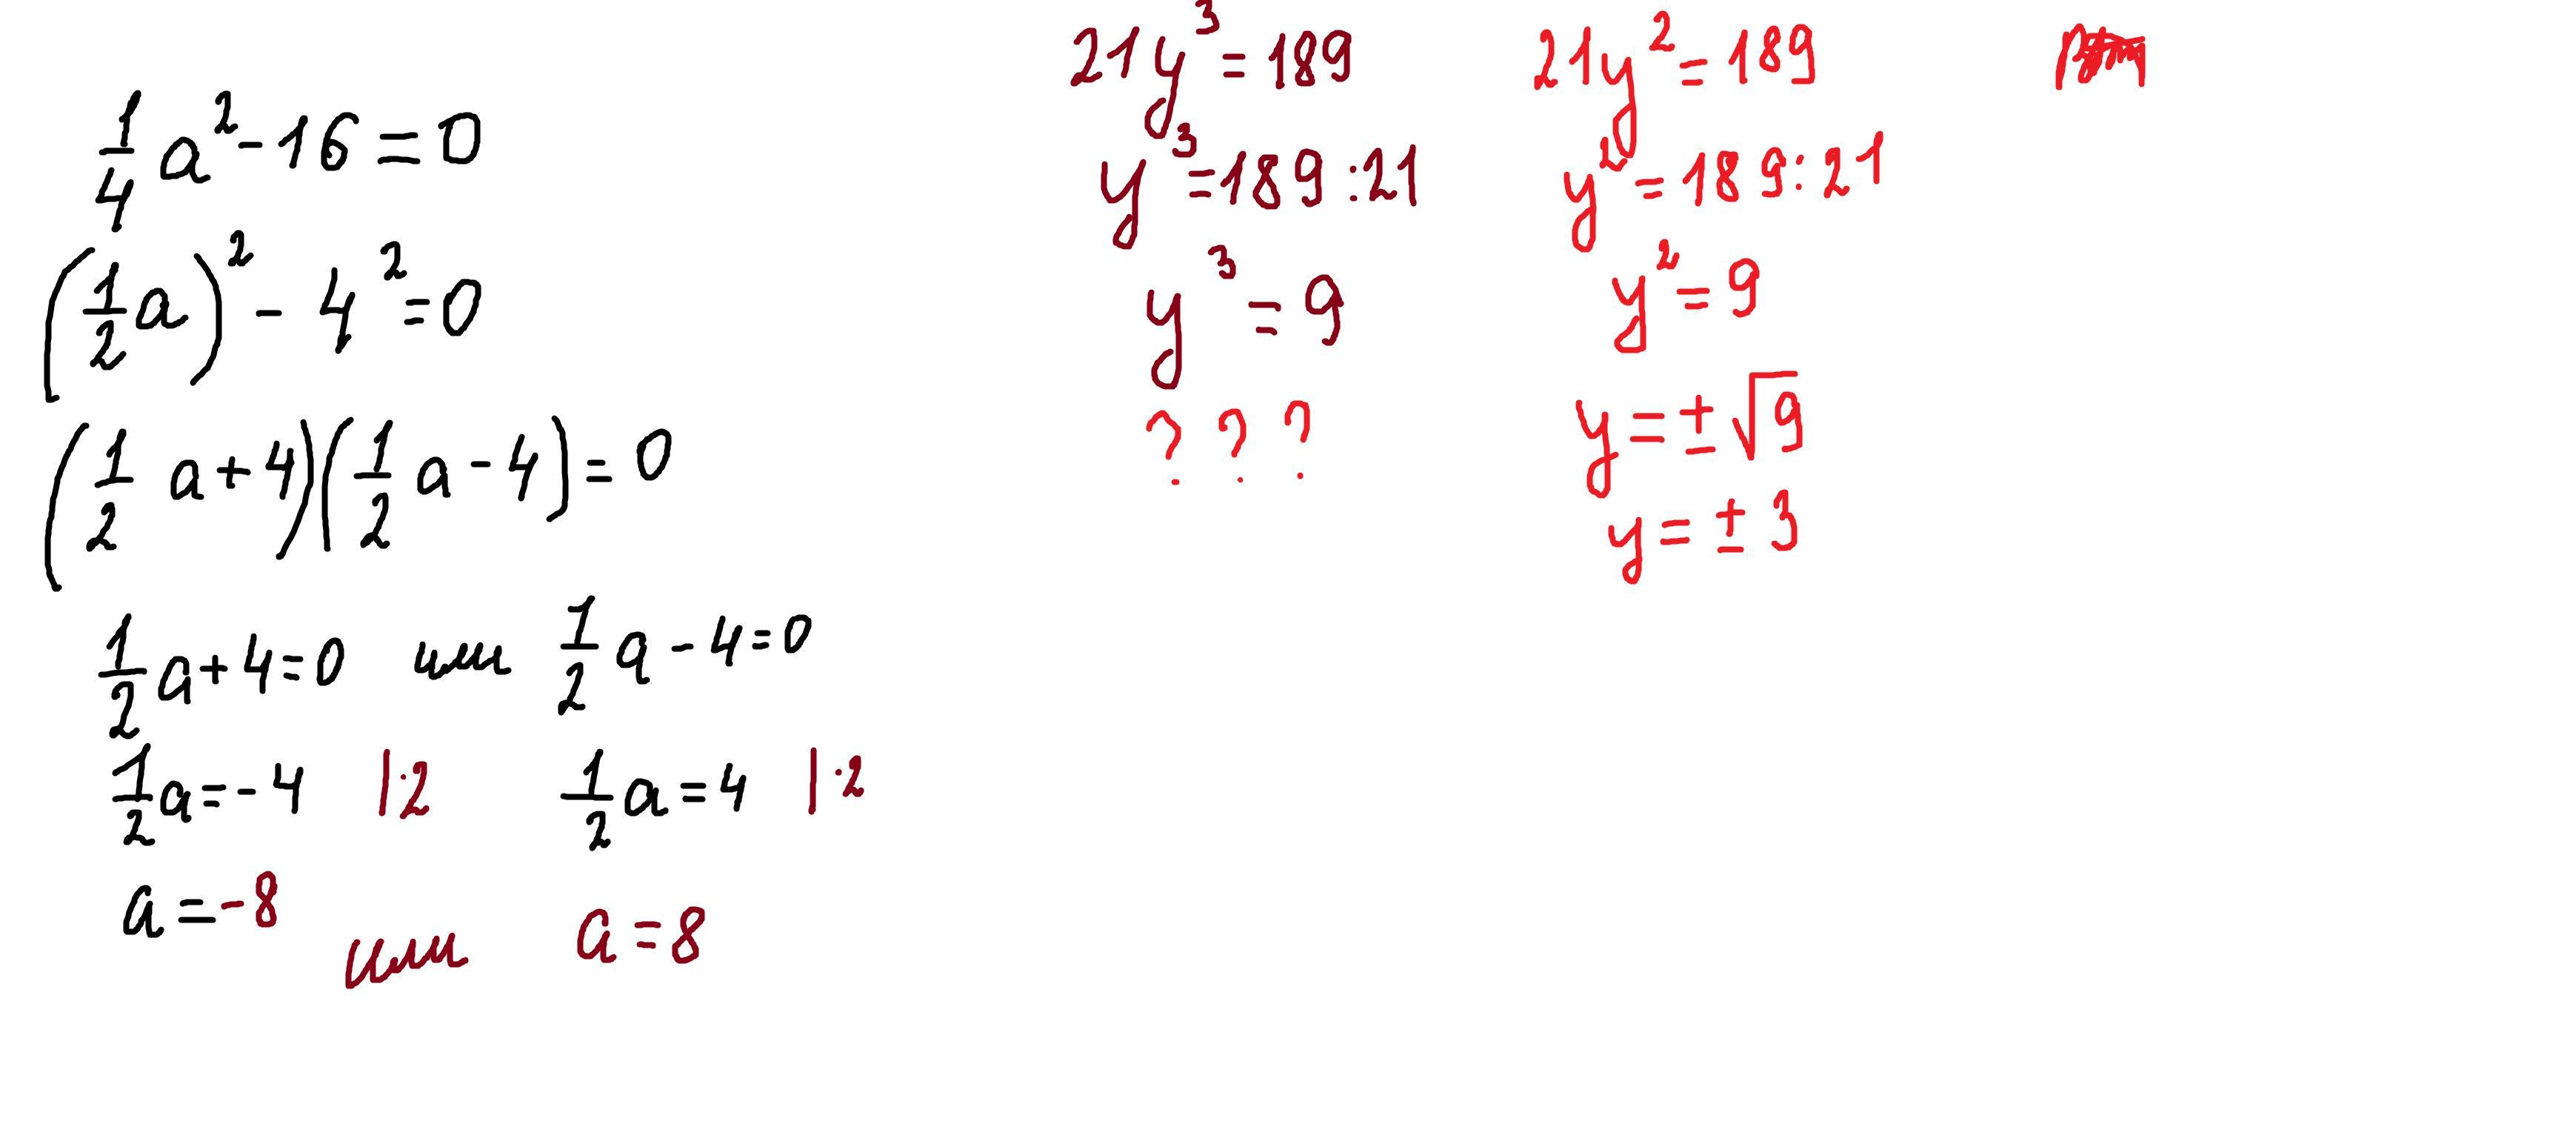 1/4 a² - 16 = 0
(1/2 a)² - 4² = 0
(1/2 a + 4)(1/2 a - 4) = 0
1/2 a + 4 = 0 или 1/2 a - 4 = 0
1/2 a = - 4 | · 2 1/2 a = 4 | · 2
a = - 8 или a = 8
21y³ = 189
y³ = 189 : 21
y³ = 9
? ? ?
21y² = 189
y² = 189 : 21
y² = 9
y = ± √9
y = ± 3